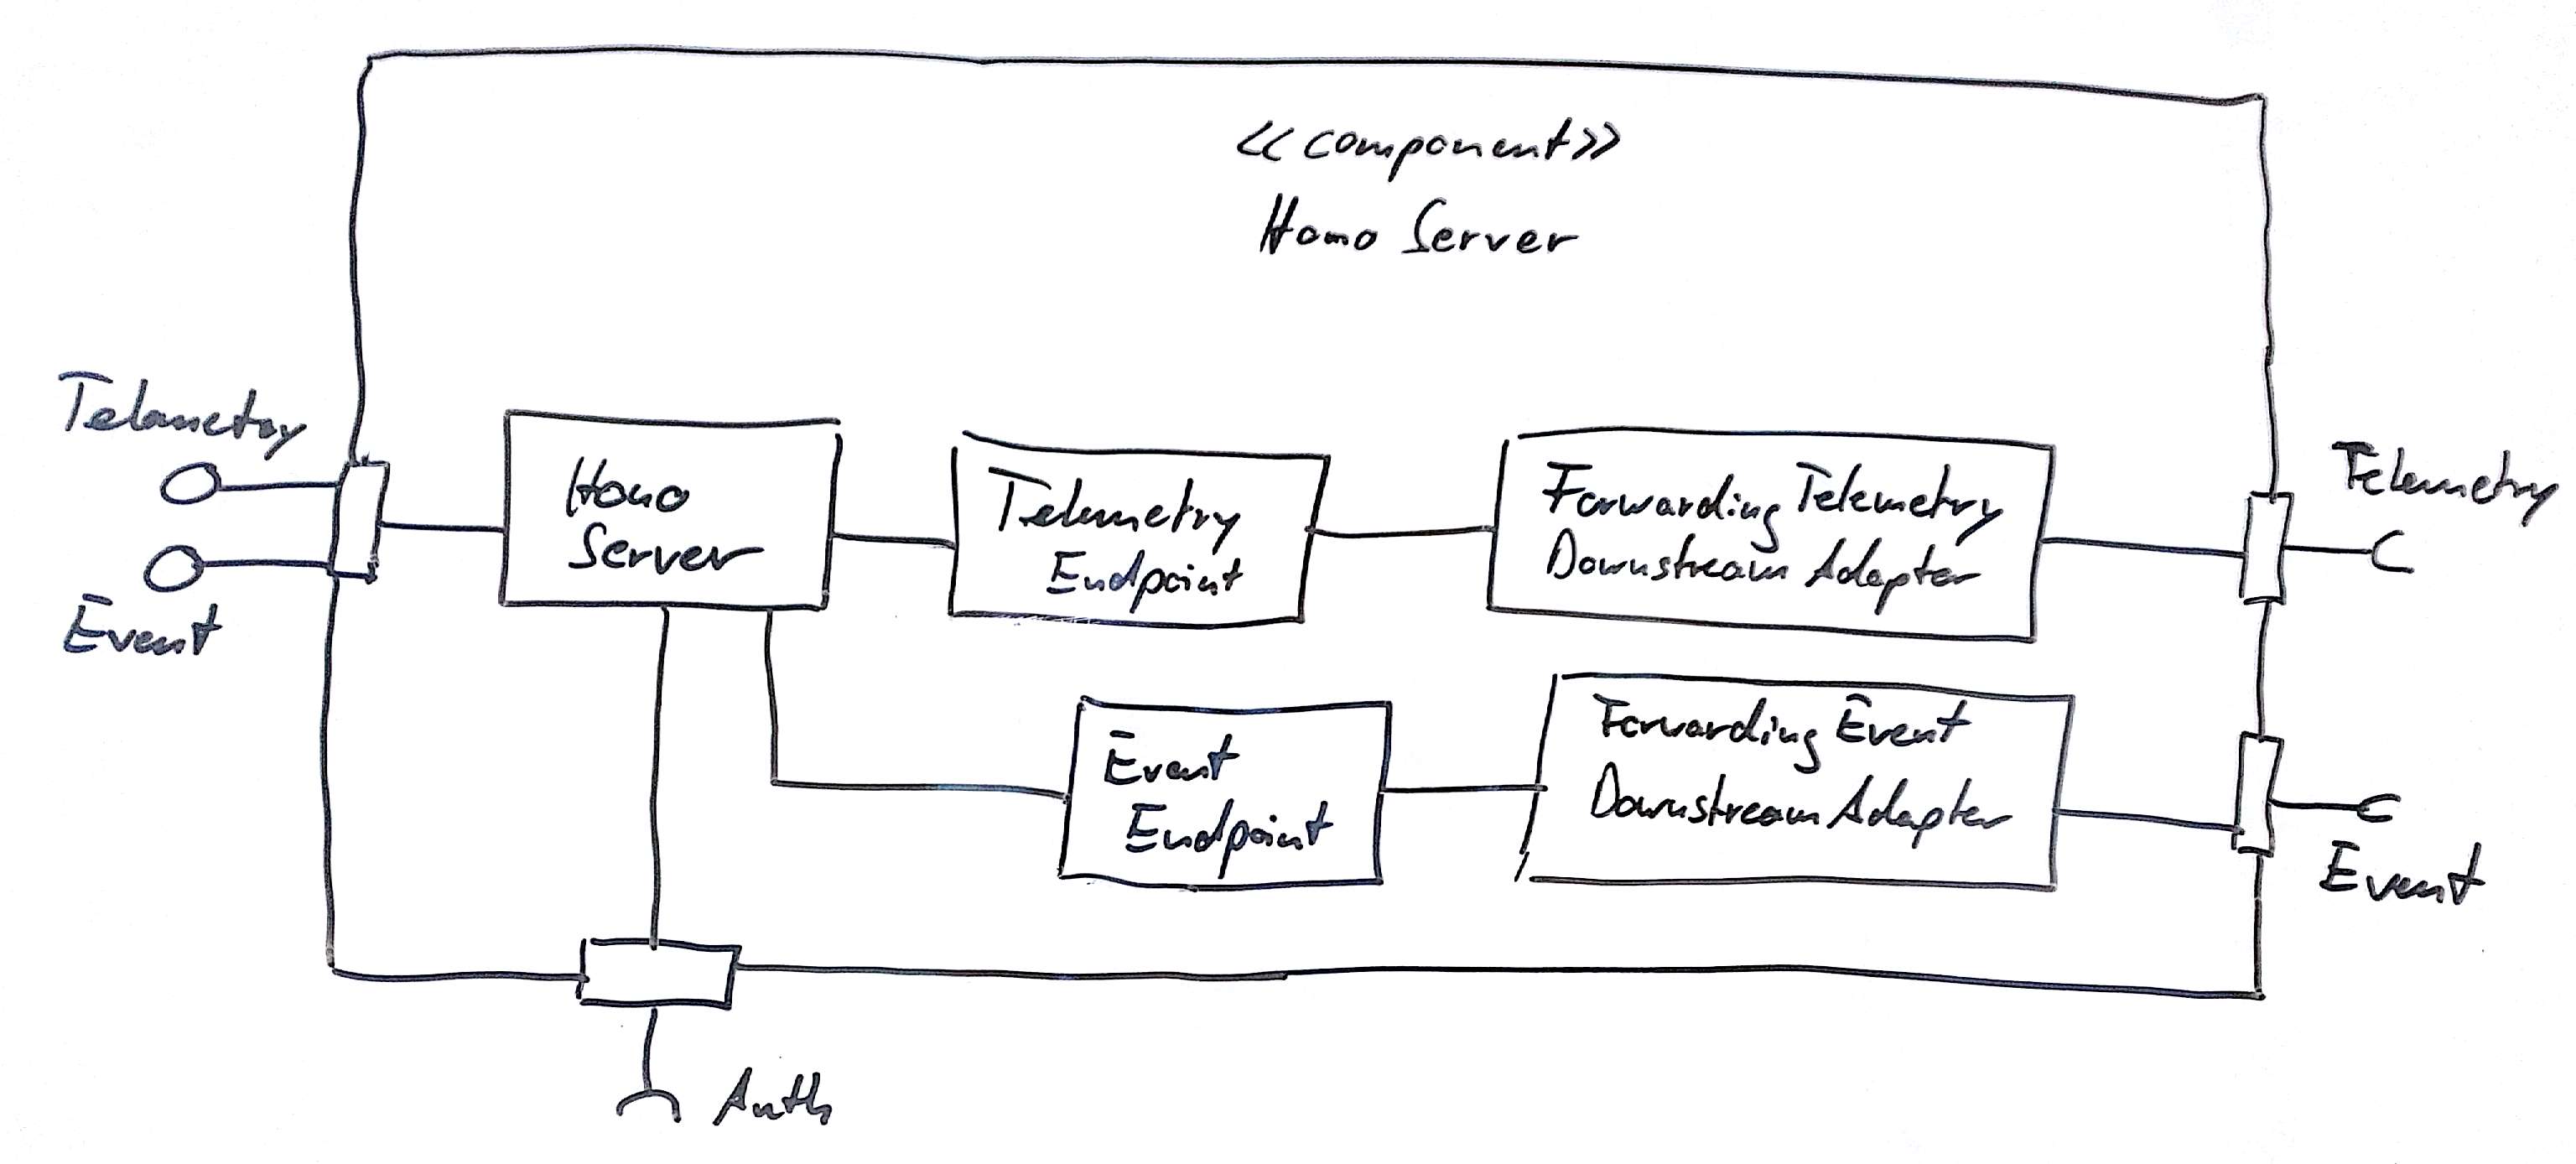 <<component>>
Hono Server
Telemetry
Event
Hono
Server
Telemetry
Endpoint
Forwarding Telemetry
Downstream Adapter
Telemetry
Event
Endpoint
Forwarding Event
Downstream Adapter
Event
Auth